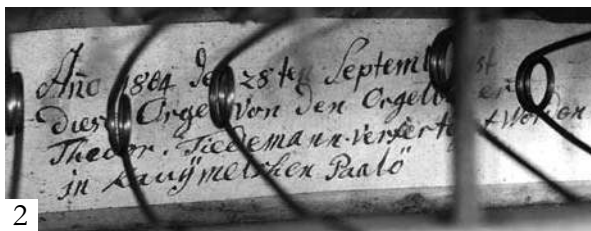 Año 1804 den 28ten Septemb ist
diese Orgel von den Orgelbauer
Theodor. Tiedemann. verfertigt worden
in Kauÿmelschen Paalö
2